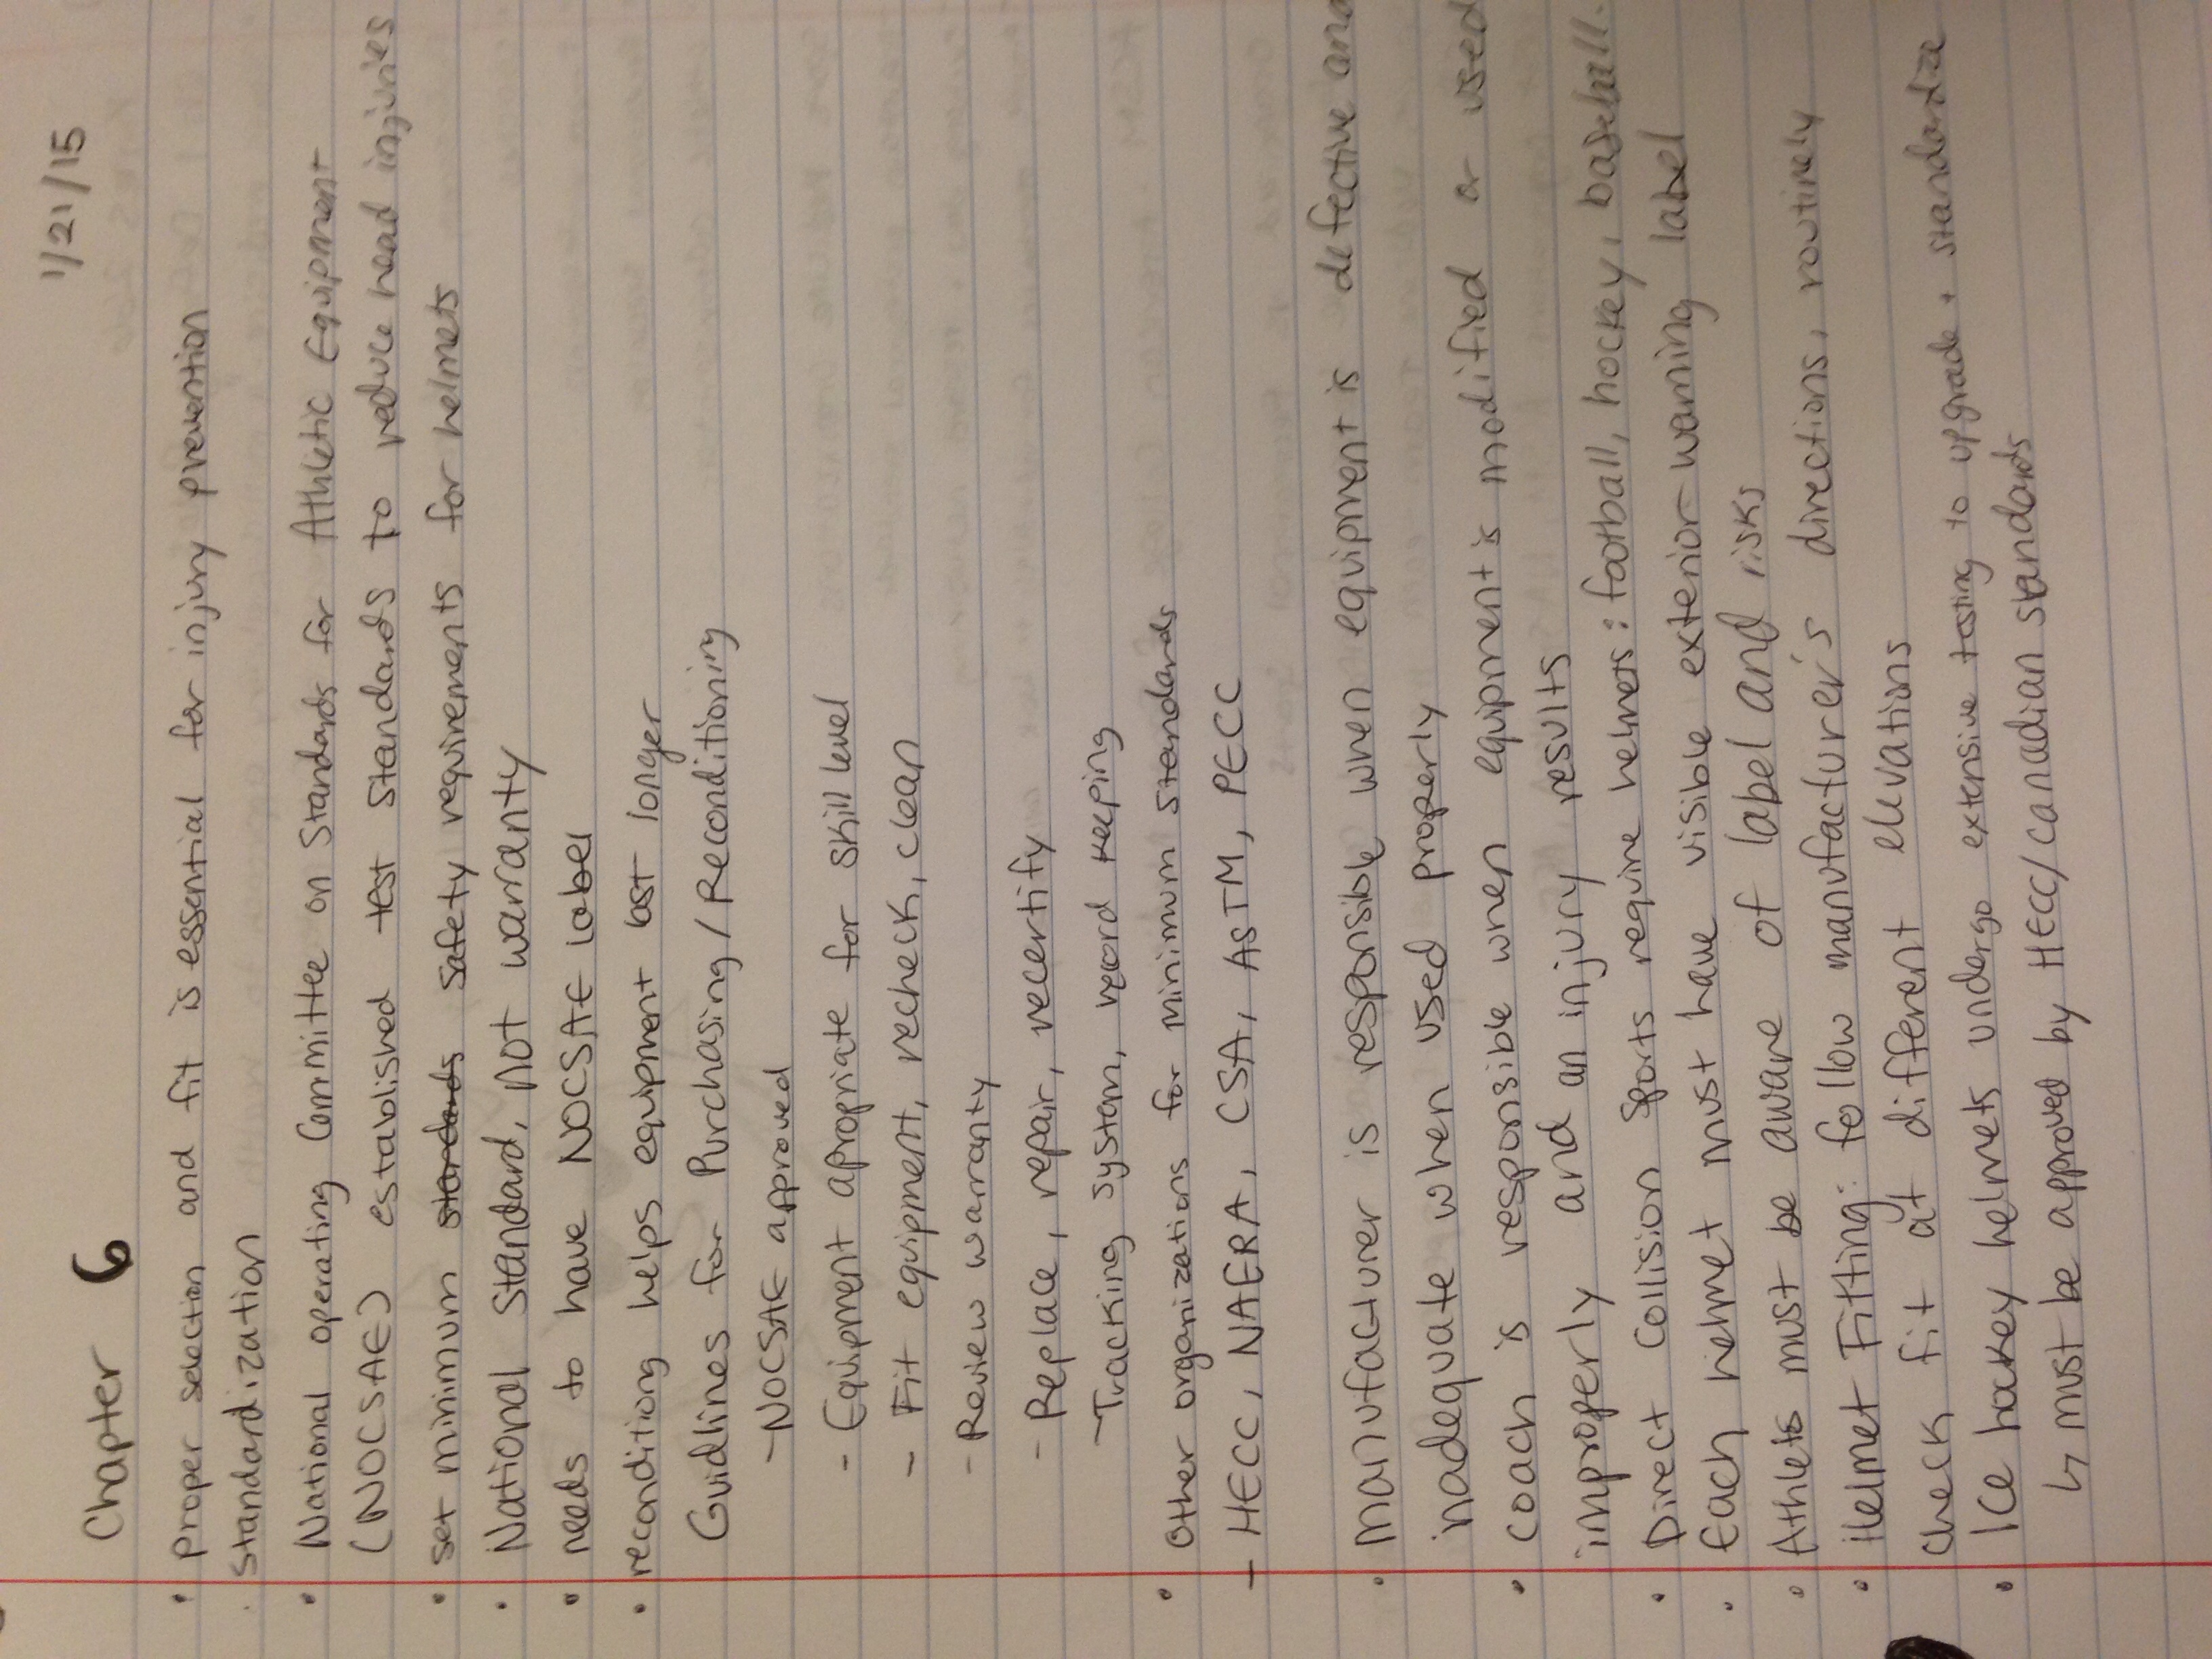 1/21/15
Chapter 6
• Proper selection and fit is essential for injury prevention
. Standardization
• National operating Committee on Standards for Athletic Equipment
(NOCSAE) established test standards to reduce head injuries
• set minimum standards safety requirements for helmets
• National Standard, not warranty
• needs to have NOCSAE label
• reconditiong helps equipment last longer
Guidlines for Purchasing/Reconditioning
- NOCSAE approved
- Equipment apropriate for skill level
- Fit equipment, recheck, clean
- Review warranty
- Replace, repair, recertify
- Tracking system, record keeping
• Other organizations for minimum standards
- HECC, NAERA, CSA, ASTM, PECC
• manufacturer is responsible when equipment is defective and
inadequate when used properly
• coach is responsible when equipment is modified or used
improperly and an injury results
• Direct Collision sports require helmets: football, hockey, baseball.
• Each helmet must have visible exterior warning label
• Athlets must be aware of label and risks
• Helmet Fitting: follow manufacturer's directions, routinely
check fit at different elevations
• Ice hockey helmets undergo extensive testing to upgrade + standardize
↳ must be approved by HECC/Canadian standards